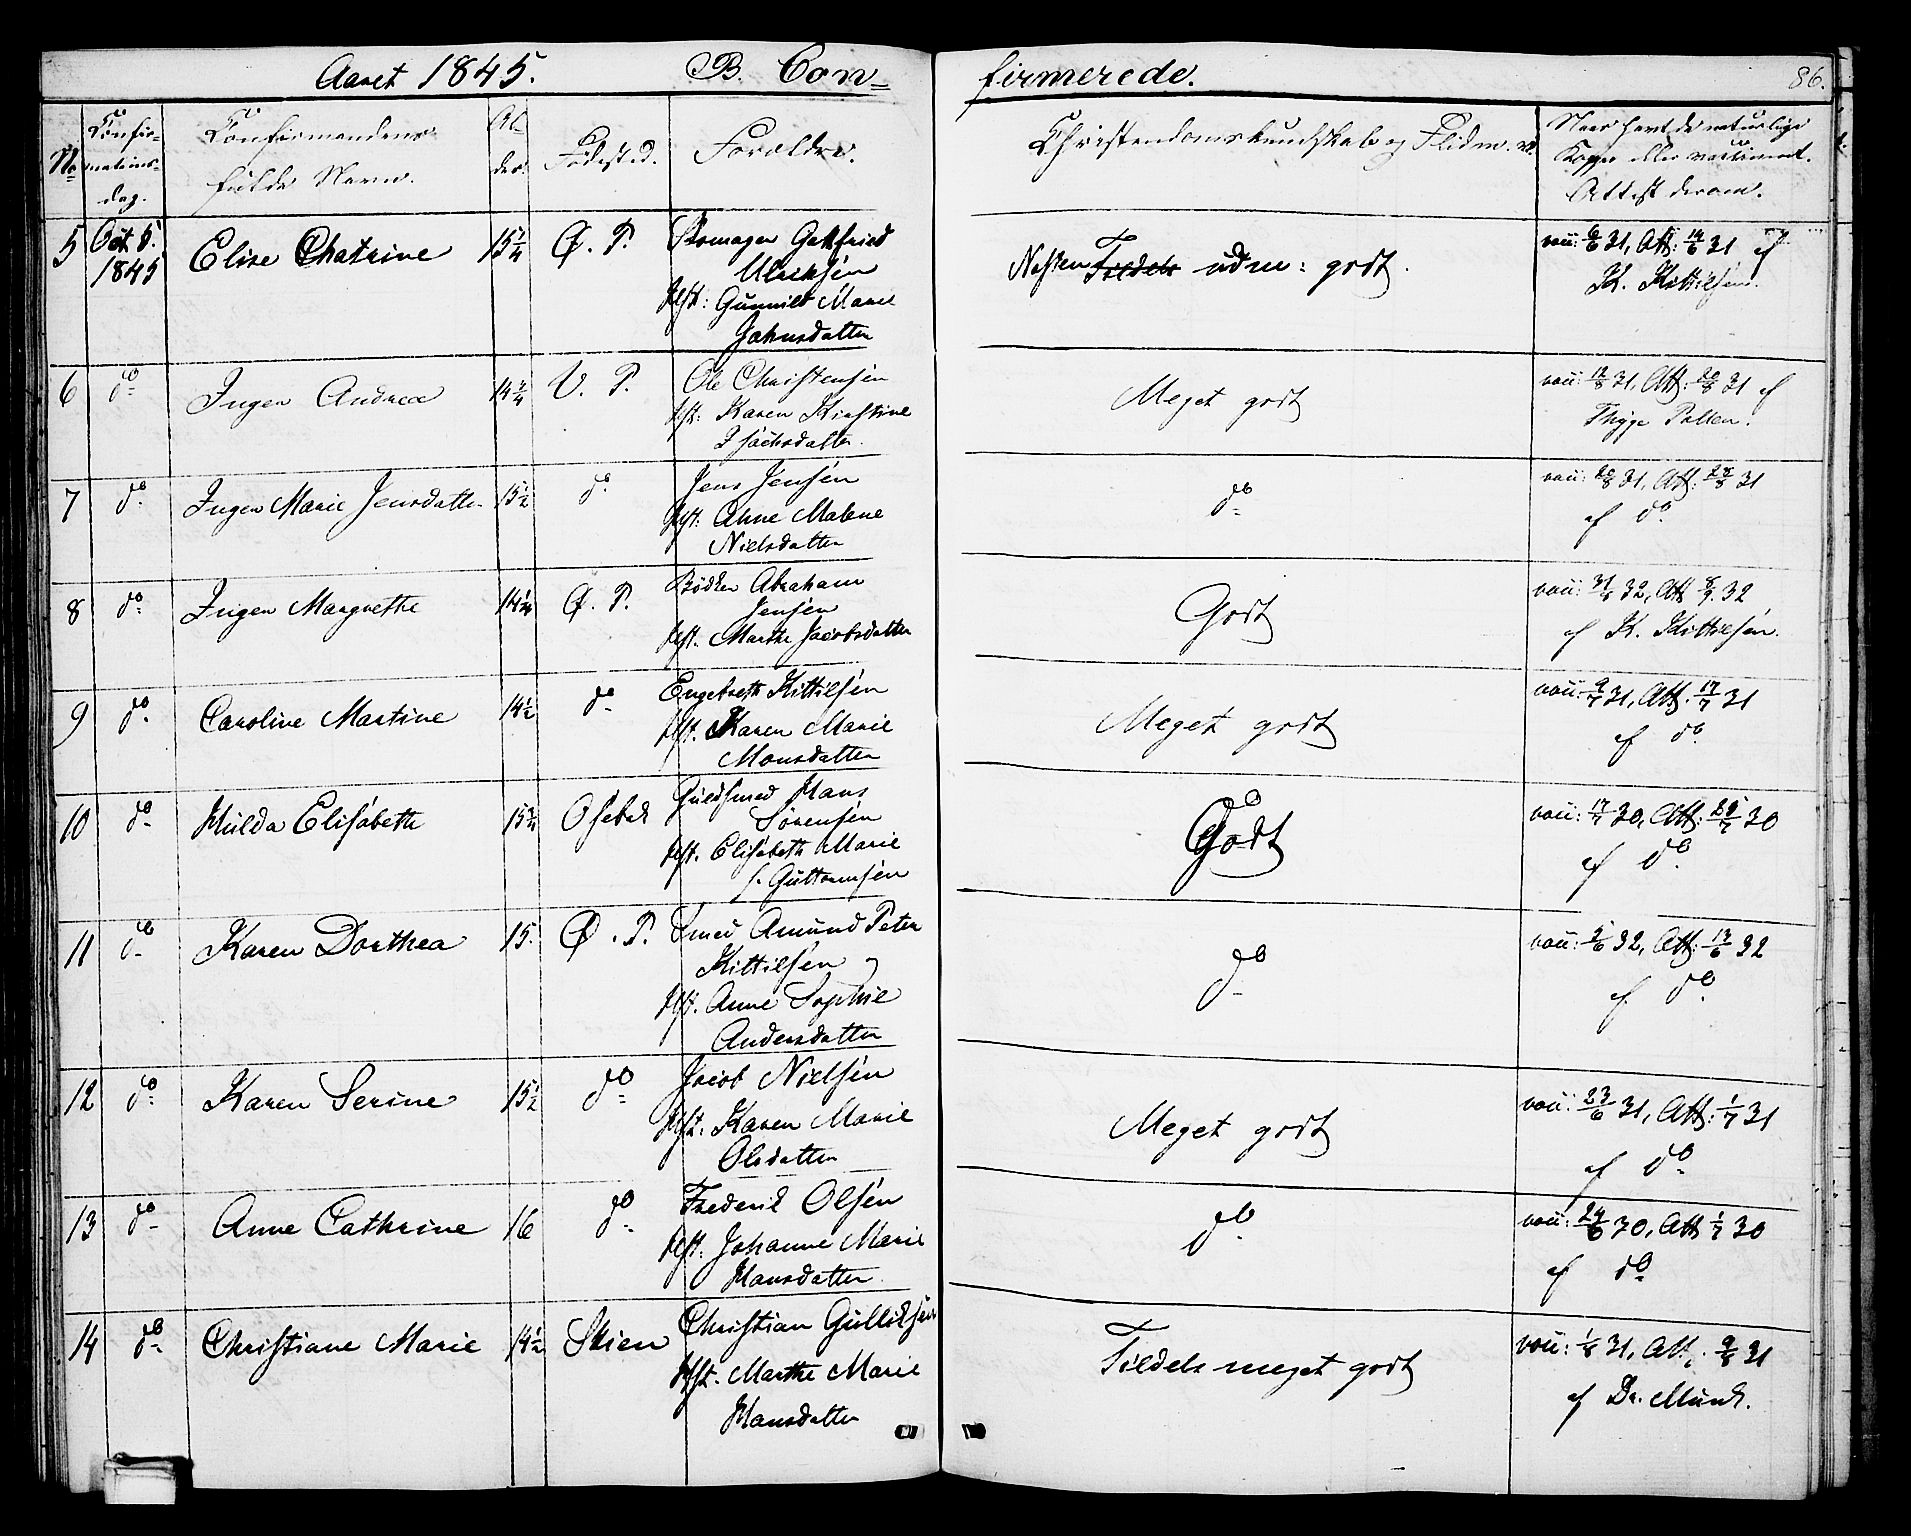 Aaret 1845. B. Con=
firmerede. 86.
No Confir-mations-dag. Confirmandens fulde Navn. Al-der. Fødested. Forældre. Christendomskundskab og Flid m. v. Naar havt de naturlige Kopper eller vaccineret. Attest derom.
5 Oct 5. 1845 Elise Chatrine 15 1/4 Ø. P. Skomager Gotfried
Ulrichsen
Hst: Gunnild Marie
Johnsdatter
Næsten Tildels udm: godt. vacc: 6/6 31, Att: 14/6 31 af
K. Kittilsen.
6 do Inger Andrea 14 3/4 V. P. Ole Christensen
Hst: Karen Kirstine
Isachsdatter.
Meget godt vacc: 12/8 31, Att: 20/8 31 af
Thyge Pallen.
7 do Inger Marie Jensdatter 15 1/2 do Jens Jensen
Hst: Anne Malene
Nielsdatter
do vacc: 20/8 31, Att: 28/8 31
af do
8 do Inger Margrethe 14 1/4 Ø. P. Bødker Abraham
Jensen
Hst. Marthe Jacobsdatter
Godt vacc: 31/8 32, Att 8/9 32
af K. Kittilsen.
9 do Caroline Martine 14 1/2 do Engebreth Kittilsen
Hst. Karen Marie
Monsdatter
Meget godt vacc: 9/7 31, Att. 17/7 31
af do
10 do Hulda Elisabeth 15 3/4 Osebak Guldsmed Hans
Sørensen
Hst. Elisabeth Marie
f. Guttormsen
Godt vacc: 17/7 30, Att: 25/7 30
af do
11 do Karen Dorthea 15. Ø. P. Smed Amund Peter
Kittilsen og
Hst. Anne Sophie
Andersdatter
do vacc: 5/6 32, Att: 13/6 32
af. do
12 do Karen Serine 15 1/2 do Jacob Nielsen
Hst: Karen Marie
Olsdatter
Meget godt vacc: 23/6 31, Att: 1/7 31
af do
13 do Anne Cathrine 16 do Frederik Olsen
Hst: Johanne Marie
Hansdatter.
do vacc: 24/6 30, Att 1/7 30
af do
14 do Christiane Marie 14 1/2 Skien Christian Gulliksen
Hst. Marthe Marie
Hansdatter
Tildels meget godt vacc: 1/8 31, Att: 9/8 31
af Dr. Munk.